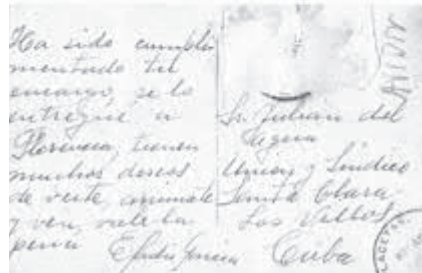 Ha sido cumpli
mentado tu
encargo, se lo
entregué a
Florencia, tienen
muchos deseos
de verte, animate
y ven, vale la
pena
Sr. Julian del
Union y Sindico
Santa Clara
Las Villas
Cuba